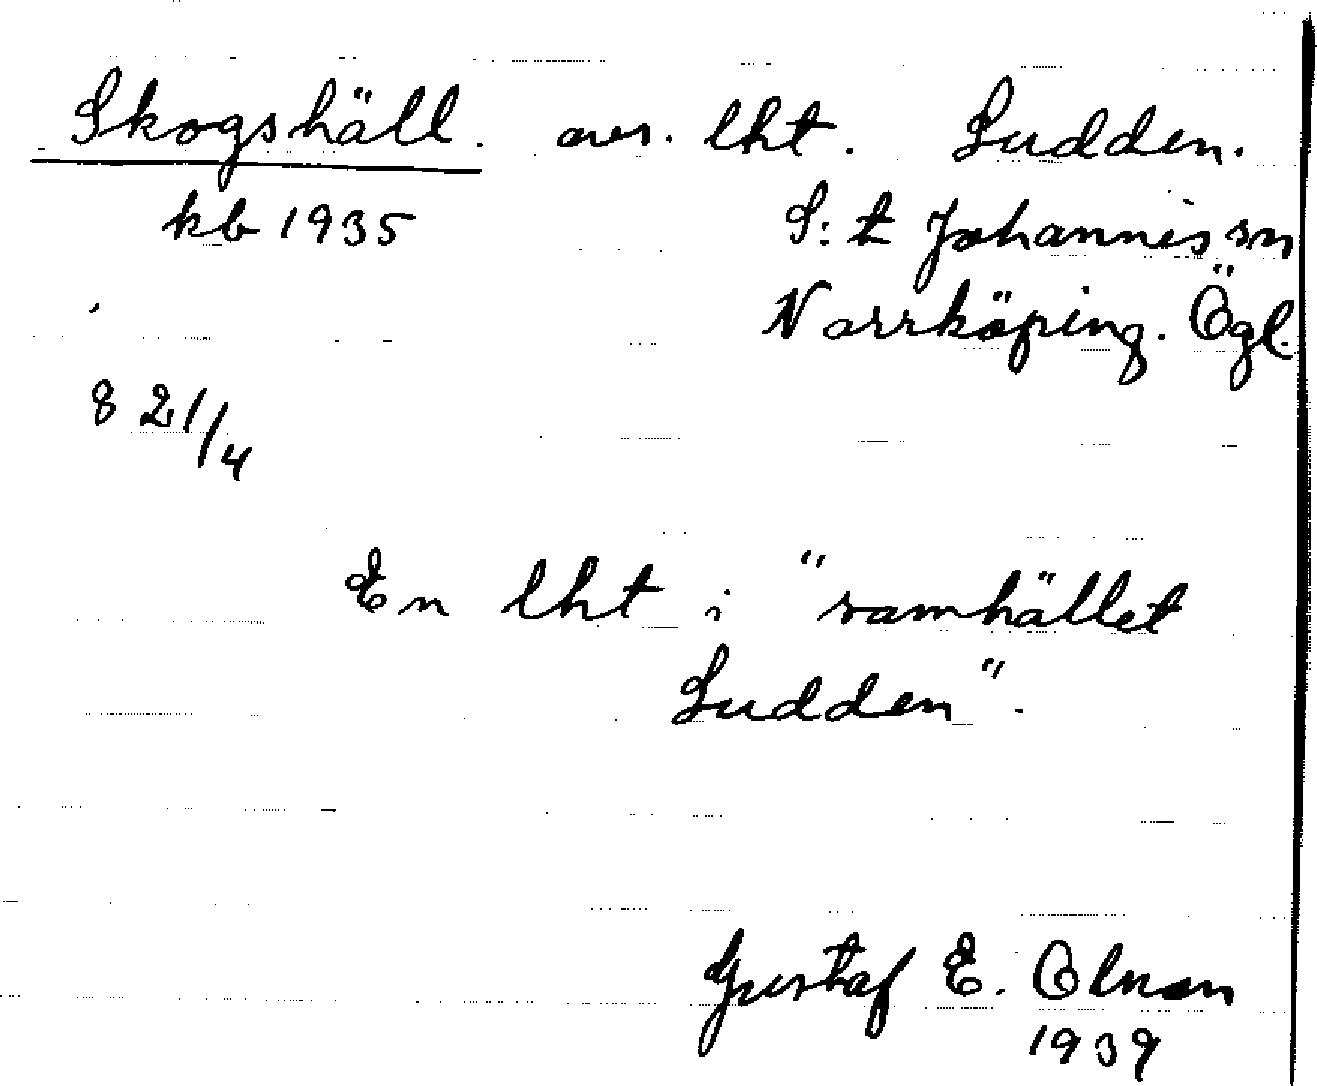 Skogshäll. avs. lht. Sudden.
kb 1935
S:t Johannis sn
Norrköping. Ögl.
8 21/4
En lht i "samhället
Sudden".
Gustaf E. Olman
1939